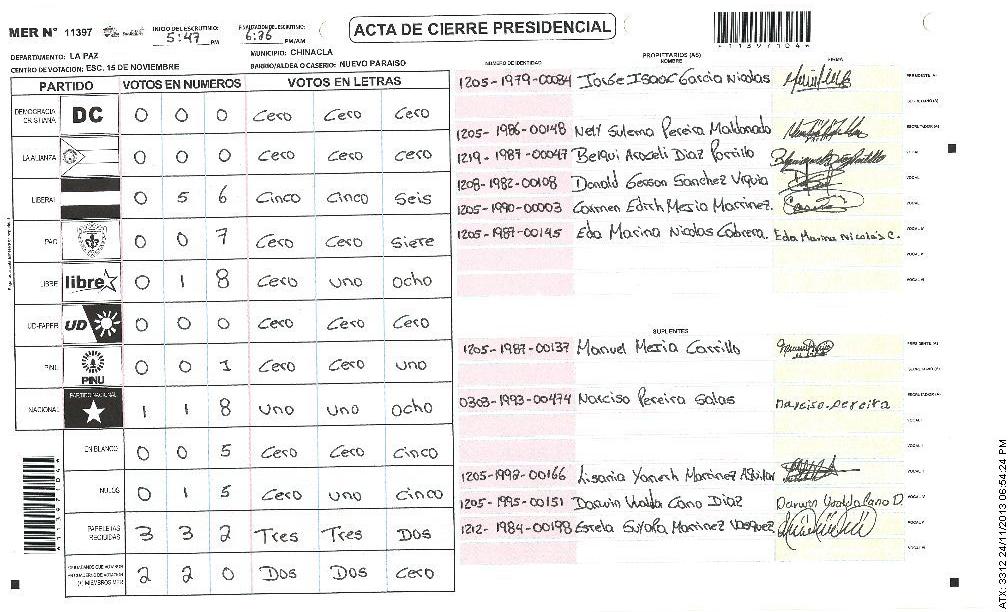 MER N° 11397
INICIO DEL ESCRUTINIO: 5:47 PM
FINALIZACION DEL ESCRUTINIO: 6:26 PM/AM
ACTA DE CIERRE PRESIDENCIAL
DEPARTAMENTO: LA PAZ
MUNICIPIO: CHINACLA
CENTRO DE VOTACION: ESC. 15 DE NOVIEMBRE
BARRIO/ALDEA O CASERIO: NUEVO PARAISO
PARTIDO VOTOS EN NUMEROS VOTOS EN LETRAS
DEMOCRACIA CRISTIANA DC 0 0 0 Cero Cero Cero
LA ALIANZA 0 0 0 Cero Cero Cero
LIBERAL 0 5 6 Cinco Cinco Seis
PAC 0 0 7 Cero Cero Siete
LIBRE libre 0 1 8 Cero uno ocho
UD-FAPER UD 0 0 0 Cero Cero Cero
PINU PINU 0 0 1 Cero Cero uno
NACIONAL PARTIDO NACIONAL 1 1 8 uno uno ocho
EN BLANCO 0 0 5 Cero Cero cinco
NULOS 0 1 5 Cero uno cinco
PAPELETAS RECIBIDAS 3 3 2 Tres Tres Dos
2 2 0 Dos Dos Cero
NUMERO DE IDENTIDAD PROPIETARIOS (AS) NOMBRE FIRMA
1205-1979-00084 Jorge Isaac Garcia Nicolas PRESIDENTE (A)
SECRETARIO (A)
1205-1986-00148 Nely Sulema Pereira Maldonado ESCRUTADOR (A)
1219-1987-00047 Belqui Araceli Diaz Portillo VOCAL
1208-1982-00108 Donald Gerson Sanchez Urquia VOCAL
1205-1990-00003 Carmen Edith Mejia Martinez. VOCAL
1205-1987-00145 Eda Marina Nicolas Cabrera. Eda Marina Nicolás C. VOCAL V
VOCAL VI
SUPLENTES
1205-1987-00137 Manuel Mejia Carrillo PRESIDENTE (A)
SECRETARIO (A)
0303-1993-00474 Narciso Pereira Salas narciso.pereira ESCRUTADOR (A)
VOCAL I
1205-1992-00166 Lisania Yaneth Martinez Aguilar
1205-1995-00151 Darwin Ubaldo Cano Diaz Darwin Ubaldo Cano D.
1212-1984-00198 Estela Suyapa Martinez Vasquez VOCAL V
VOCAL VI
ATX: 3312 24/11/2013 06:54:24 PM